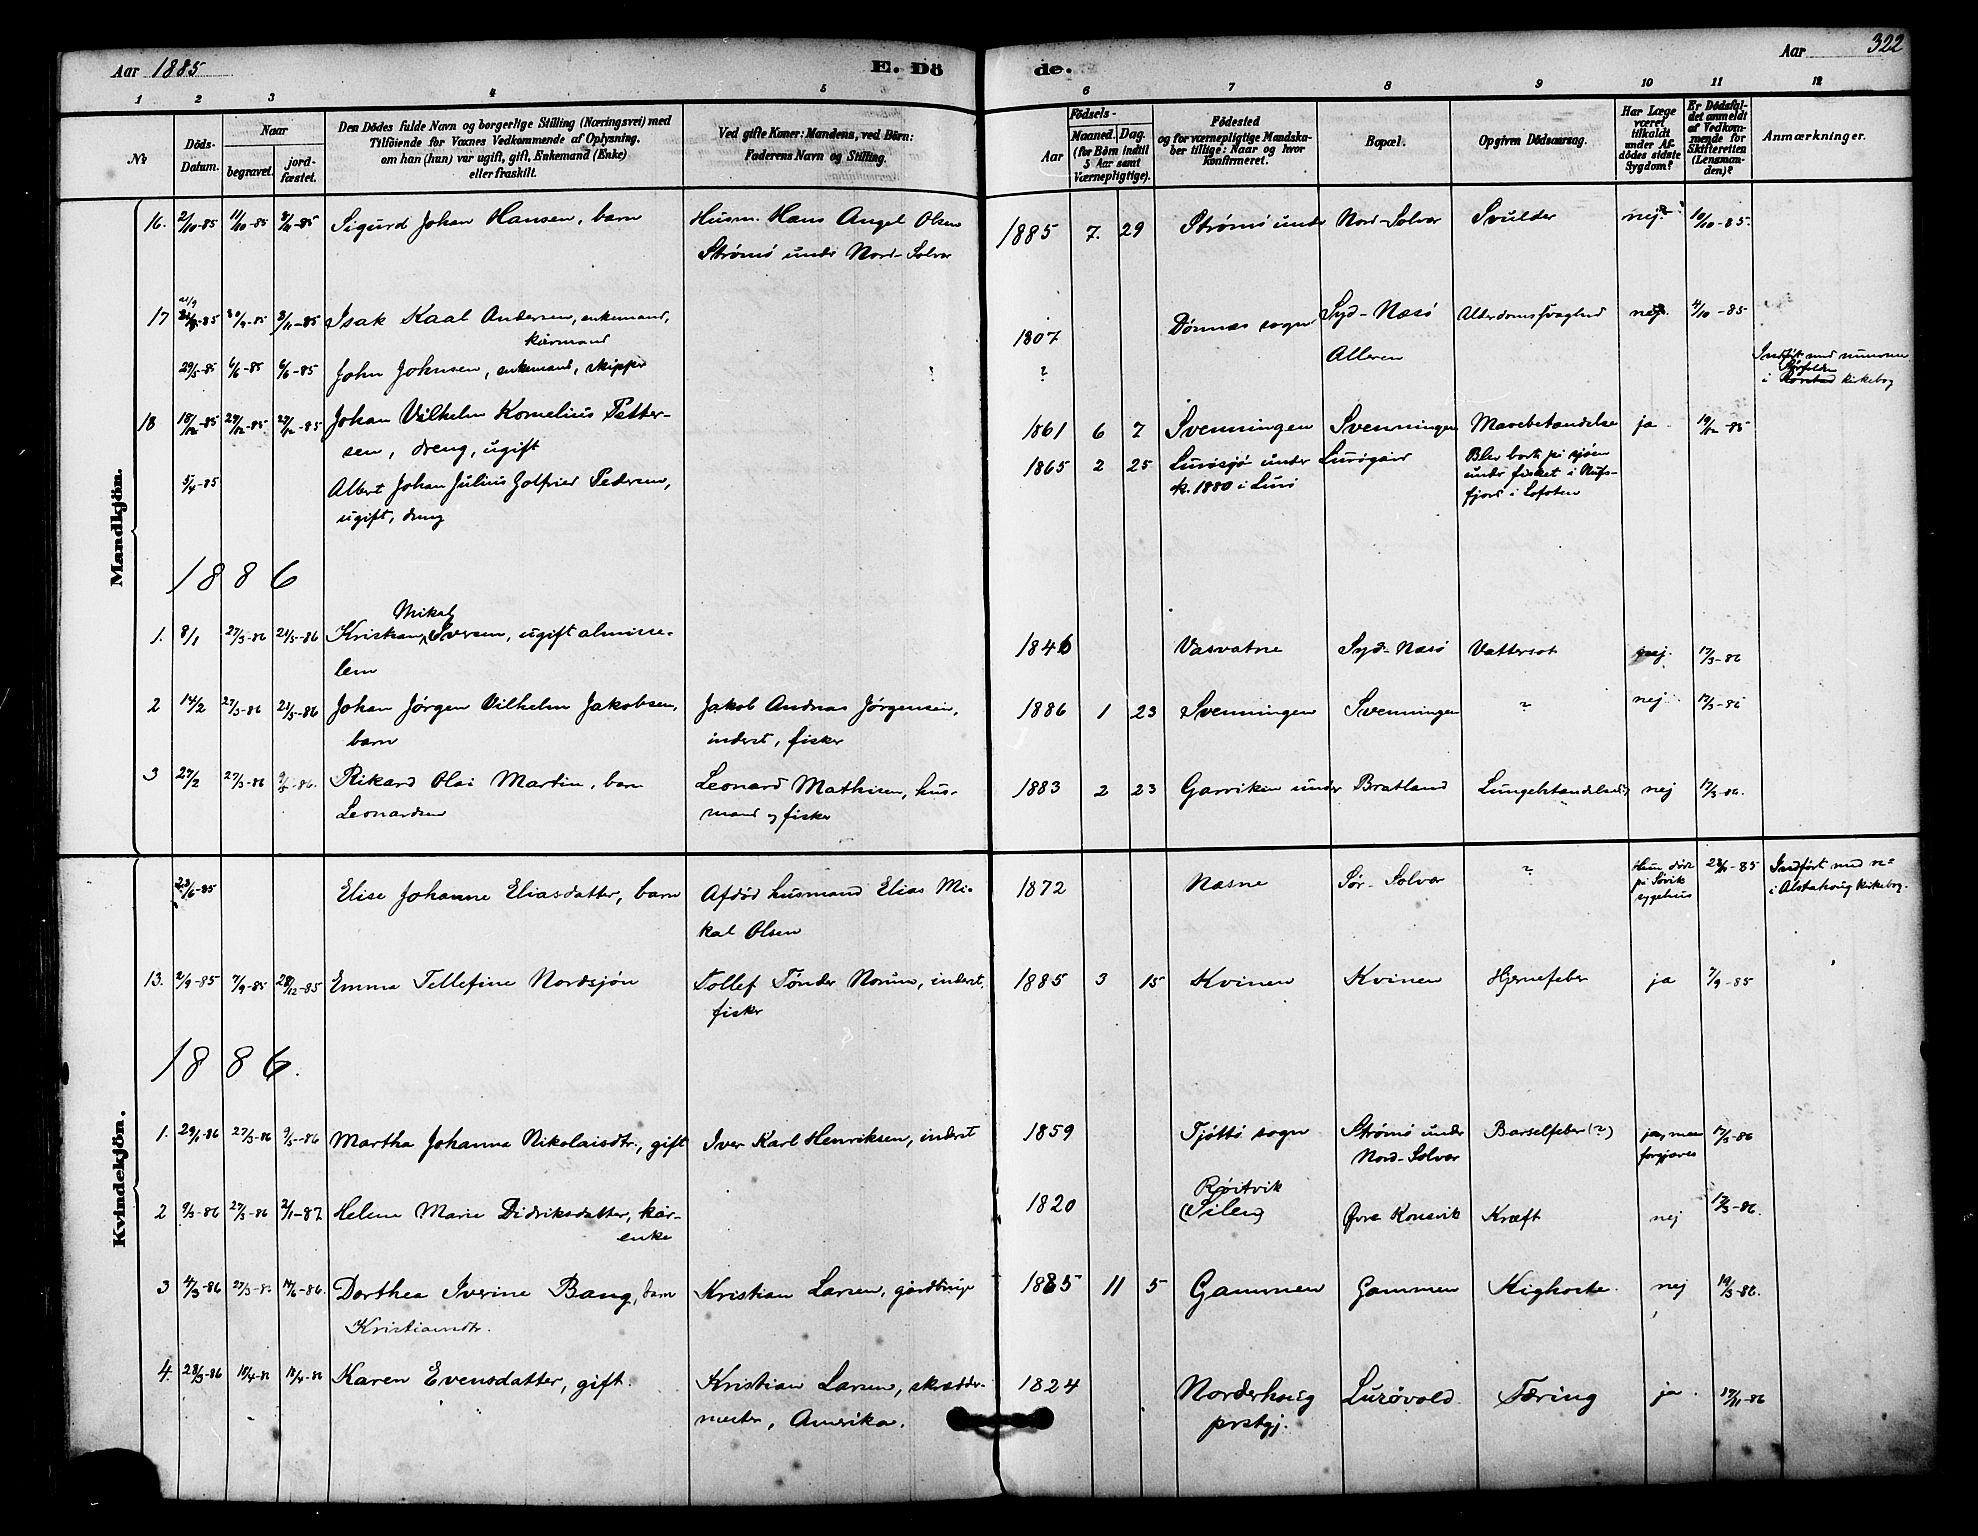 Aar 1885
E. Dö
de.
Aar 322
1 2 3 4 5 6 7 8 9 10 11 12
No
Döds-Datum.
Naar
begravet.
jord-fæstet.
Den Dödes fulde Navn og borgerlige Stilling (Næringsvei) med
Tilföiende for Voxnes Vedkommende af Oplysning.
om han (hun) var ugift, gift, Enkemand (Enke)
eller fraskilt.
Ved gifte Koner: Mandens, ved Börn:
Faderens Navn og Stilling.
Födsels-
Aar
Maaned. Dag.
(for Börn indtil
5 Aar samt
Værnepligtige).
Födested
og for værnepligtige Mandska-
ber tillige: Naar og hvor
Konfirmeret.
Bopæl.
Opgiven Dödsaarsag.
Har Læge
været
tilkaldt
under Af-
dödes sidste
Sygdom?
Er Dödsfal-
det anmeldt
af Vedkom-
mende for
Skifteretten
(Lensman-
den)?
Anmærkninger.
Mandkjön.
16. 2/10-85 11/10-85 8/11-85 Sigurd Johan Hansen, barn Husm. Hans Angel Olsen 1885 7. 29 Strømø under Nord-Solvær Svulder nej 10/10-85.
Strømø under Nord-Solvær
17 21/9 -85 30/9-85 8/11-85 Isak Kaal Andersen, enkemand, 1807 Dönnæs sogn Syd-Næsø Alderdomssvaghed nej. 4/10-85
kårmand
29/5-85 6/6-85 6/6-85 John Johnsen, enkemand, skipper ? Alleren Indført med nummer
i Rørstad kirkebog
18 18/12-85 27/12-85 27/12-85 Johan Vilhelm Kornelius Petter- 1861 6 7 Svenningen Svenningen Mavebetændelse ja 19/12-85
sen, dreng, ugift
5/4-85 Albert Johan Julius Gotfried Pedersen, 1865 2 25 Lurøsjø under Lurøgård Blev borte på sjøen
ugift, dreng k. 1880 i Lurø under fisket i Nufs-
fjord i Lofoten
1886
Mikal
1. 8/1 27/3-86 21/5-86 Kristian Iversen, ugift almisse- 1846 Vasvatne Syd-Næsø Vattersot nej. 17/3-86
lem
2 14/2 27/3-86 21/5-86 Johan Jørgen Vilhelm Jakobsen, Jakob Andreas Jørgensen, 1886 1 23 Svenningen Svenningen ? nej 17/3-86
barn inderst, fisker
3 27/2 27/3-86 -86. Rikard Olai Martin, barn Leonard Mathisen, hus- 1883 2 23 Garviken under Bratland nej 17/3-86.
Leonardsen mand og fisker
Kvindekjön.
23/6-85 Elise Johanne Eliasdatter, barn Afdød husmand Elias Mi- 1872 Næsne Sør-Solvær ? Hun døde -85 Indført med no
kal Olsen på Søvik i Alstahoug kirkebog.
sygehus
13. 2/9-85 7/9-85 28/12-85 Emma Tellefine Nordsjön Tollef Tönder Norum, inderst, 1885 3 15 Kvinen Kvinen Hjernefeber ja 7/9-85
fisker
1886.
1. 29/1-86 27/3-86 9/5-86 Martha Johanna Nikolaisdtr., gift Iver Karl Henriksen, inderst 1859 Tjöttø sogn Strømø under Barselfeber (?) ja, men 17/3-86
Nord-Solvær forgjæves
2 9/3-86 27/3-86 2/1-87 Helene Marie Didriksdatter, kår- 1820 Røitvik Øvre Konsvik Kræft nej 17/3-86.
enke (Silen)
3 4/3-86 27/3-86 14/6-86. Dorthea Iverine Bang, barn Kristian Larsen, gårdbruger 1885 11 5 Gammen Gammen Kighoste. nej 19/3-86.
Kristiansdtr.
4. 28/3-86 18/4-86 18/4-86 Karen Evensdatter, gift. Kristian Larsen, skrædder- 1824 Norderhoug Lurøvold Tæring ja. 17/11-86
mester, Amerika. prstgj.